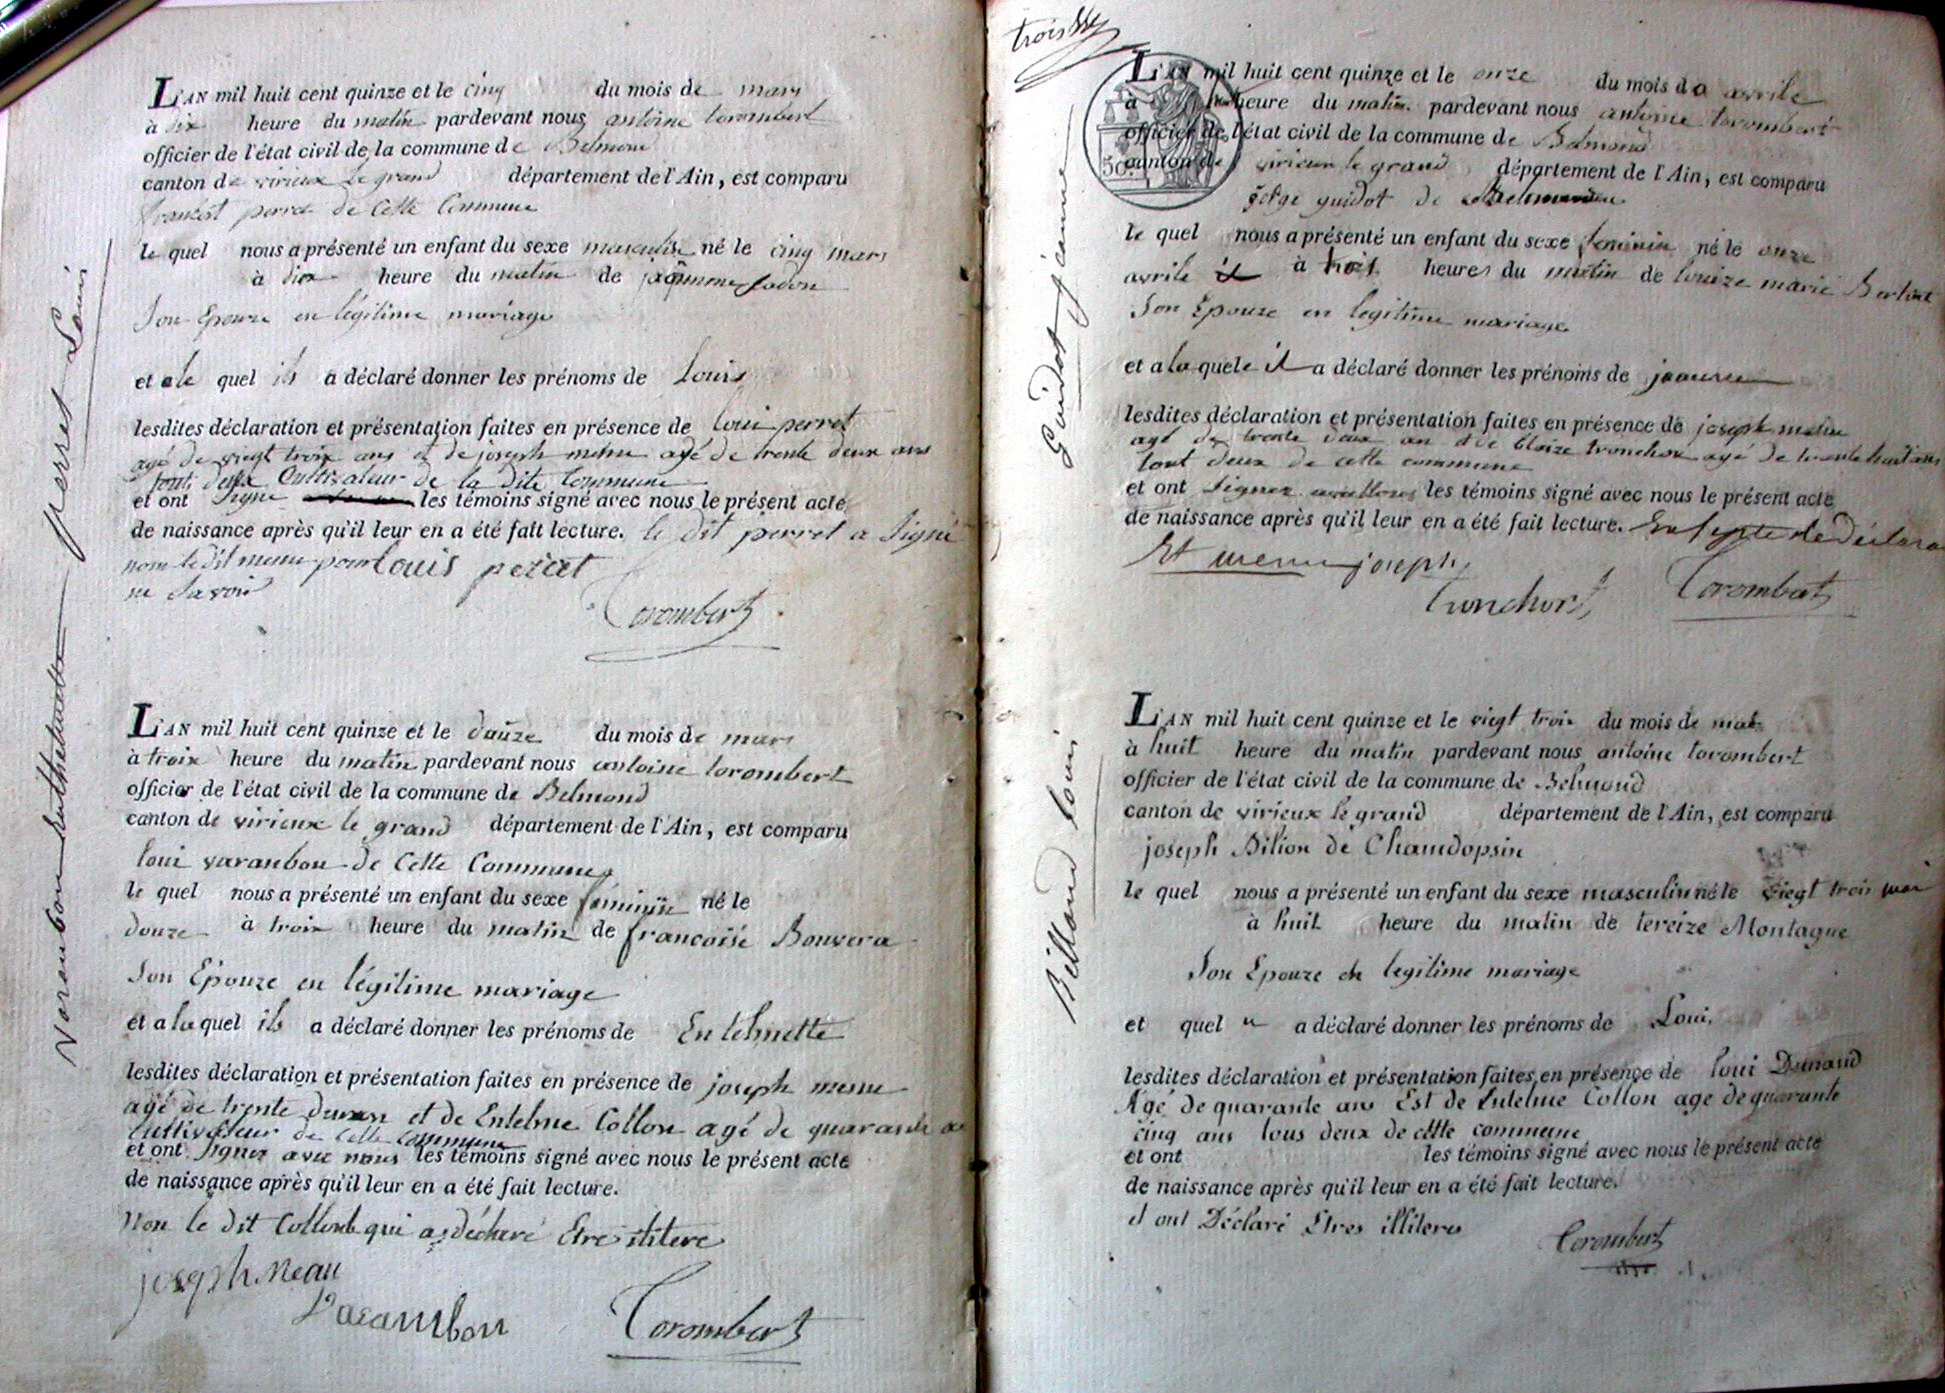 perret Louis
L'AN mil huit cent quinze et le cinq du mois de mars
à dix heure du matin pardevant nous antoine torombert
officier de l'état civil de la commune de Belmond
canton de virieux le grand département de l'Ain, est comparu
perret de Cette Commune
le quel nous a présenté un enfant du sexe masculin né le cinq mars
à dix heure du matin de
Son Epouze en légitime mariage
et a le quel ils a déclaré donner les prénoms de Louis
lesdites déclaration et présentation faites en présence de loui perret
agé de viegt trois ans et de joseph agé de trente deux ans
tout deux Cultivateur de la dite Commune
et ont Signé les témoins signé avec nous le présent acte
de naissance après qu'il leur en a été fait lecture. le dit perret a Signé
non le dit menu pour Louis peret
ne Savoir
Torombert
L'AN mil huit cent quinze et le douze du mois de mars
à troix heure du matin pardevant nous antoine torombert
officier de l'état civil de la commune de Belmond
canton de virieux le grand département de l'Ain, est comparu
loui varanbon de Cette Commune
le quel nous a présenté un enfant du sexe féminin né le
douze à troix heure du matin de francoise Bonvera
Son Epouze en légitime mariage
et a la quel ils a déclaré donner les prénoms de Entelmette
lesdites déclaration et présentation faites en présence de joseph menu
agé de trente et de Entelme Collon agé de quarante
Cultivateur de Cette Commune
et ont Signez avec nous les témoins signé avec nous le présent acte
de naissance après qu'il leur en a été fait lecture.
Non le dit Collomb qui a déclaré Etre ilitere
joseph Meau
Varambon
Torombert
trois
50
Guidot jeanne
L'AN mil huit cent quinze et le onze du mois de avrile
à heure du matin pardevant nous antoine torombert
officier de l'état civil de la commune de Belmond
canton de virieux le grand département de l'Ain, est comparu
guidot de
le quel nous a présenté un enfant du sexe feminin né le onze
avrile à trois heures du matin de louize marie
Son Epouze en legitime mariage
et a la quele il a déclaré donner les prénoms de
lesdites déclaration et présentation faites en présence de joseph
agé de trente deux an et de Blaize tronchon agé de trente huit ans
tout deux de cette commune
et ont Signez les témoins signé avec nous le présent acte
de naissance après qu'il leur en a été fait lecture.
joseph
Torombert
Billiond Louis
L'AN mil huit cent quinze et le viegt trois du mois de mai
à huit heure du matin pardevant nous antoine torombert
officier de l'état civil de la commune de Belmond
canton de virieux le grand département de l'Ain, est comparu
joseph Bilion de Chamdopsin
le quel nous a présenté un enfant du sexe masculin né le viegt trois mai
à huit heure du matin de tereize Montague
Son Epouze en legitime mariage
et quel a déclaré donner les prénoms de Loui
lesdites déclaration et présentation faites en présence de loui Dunand
Agé de quarante ans Est de Entelme Collon age de quarante
cinq ans tous deux de cette commune
et ont les témoins signé avec nous le présent acte
de naissance après qu'il leur en a été fait lecture.
et ont Déclaré Etres illiteres
Torombert